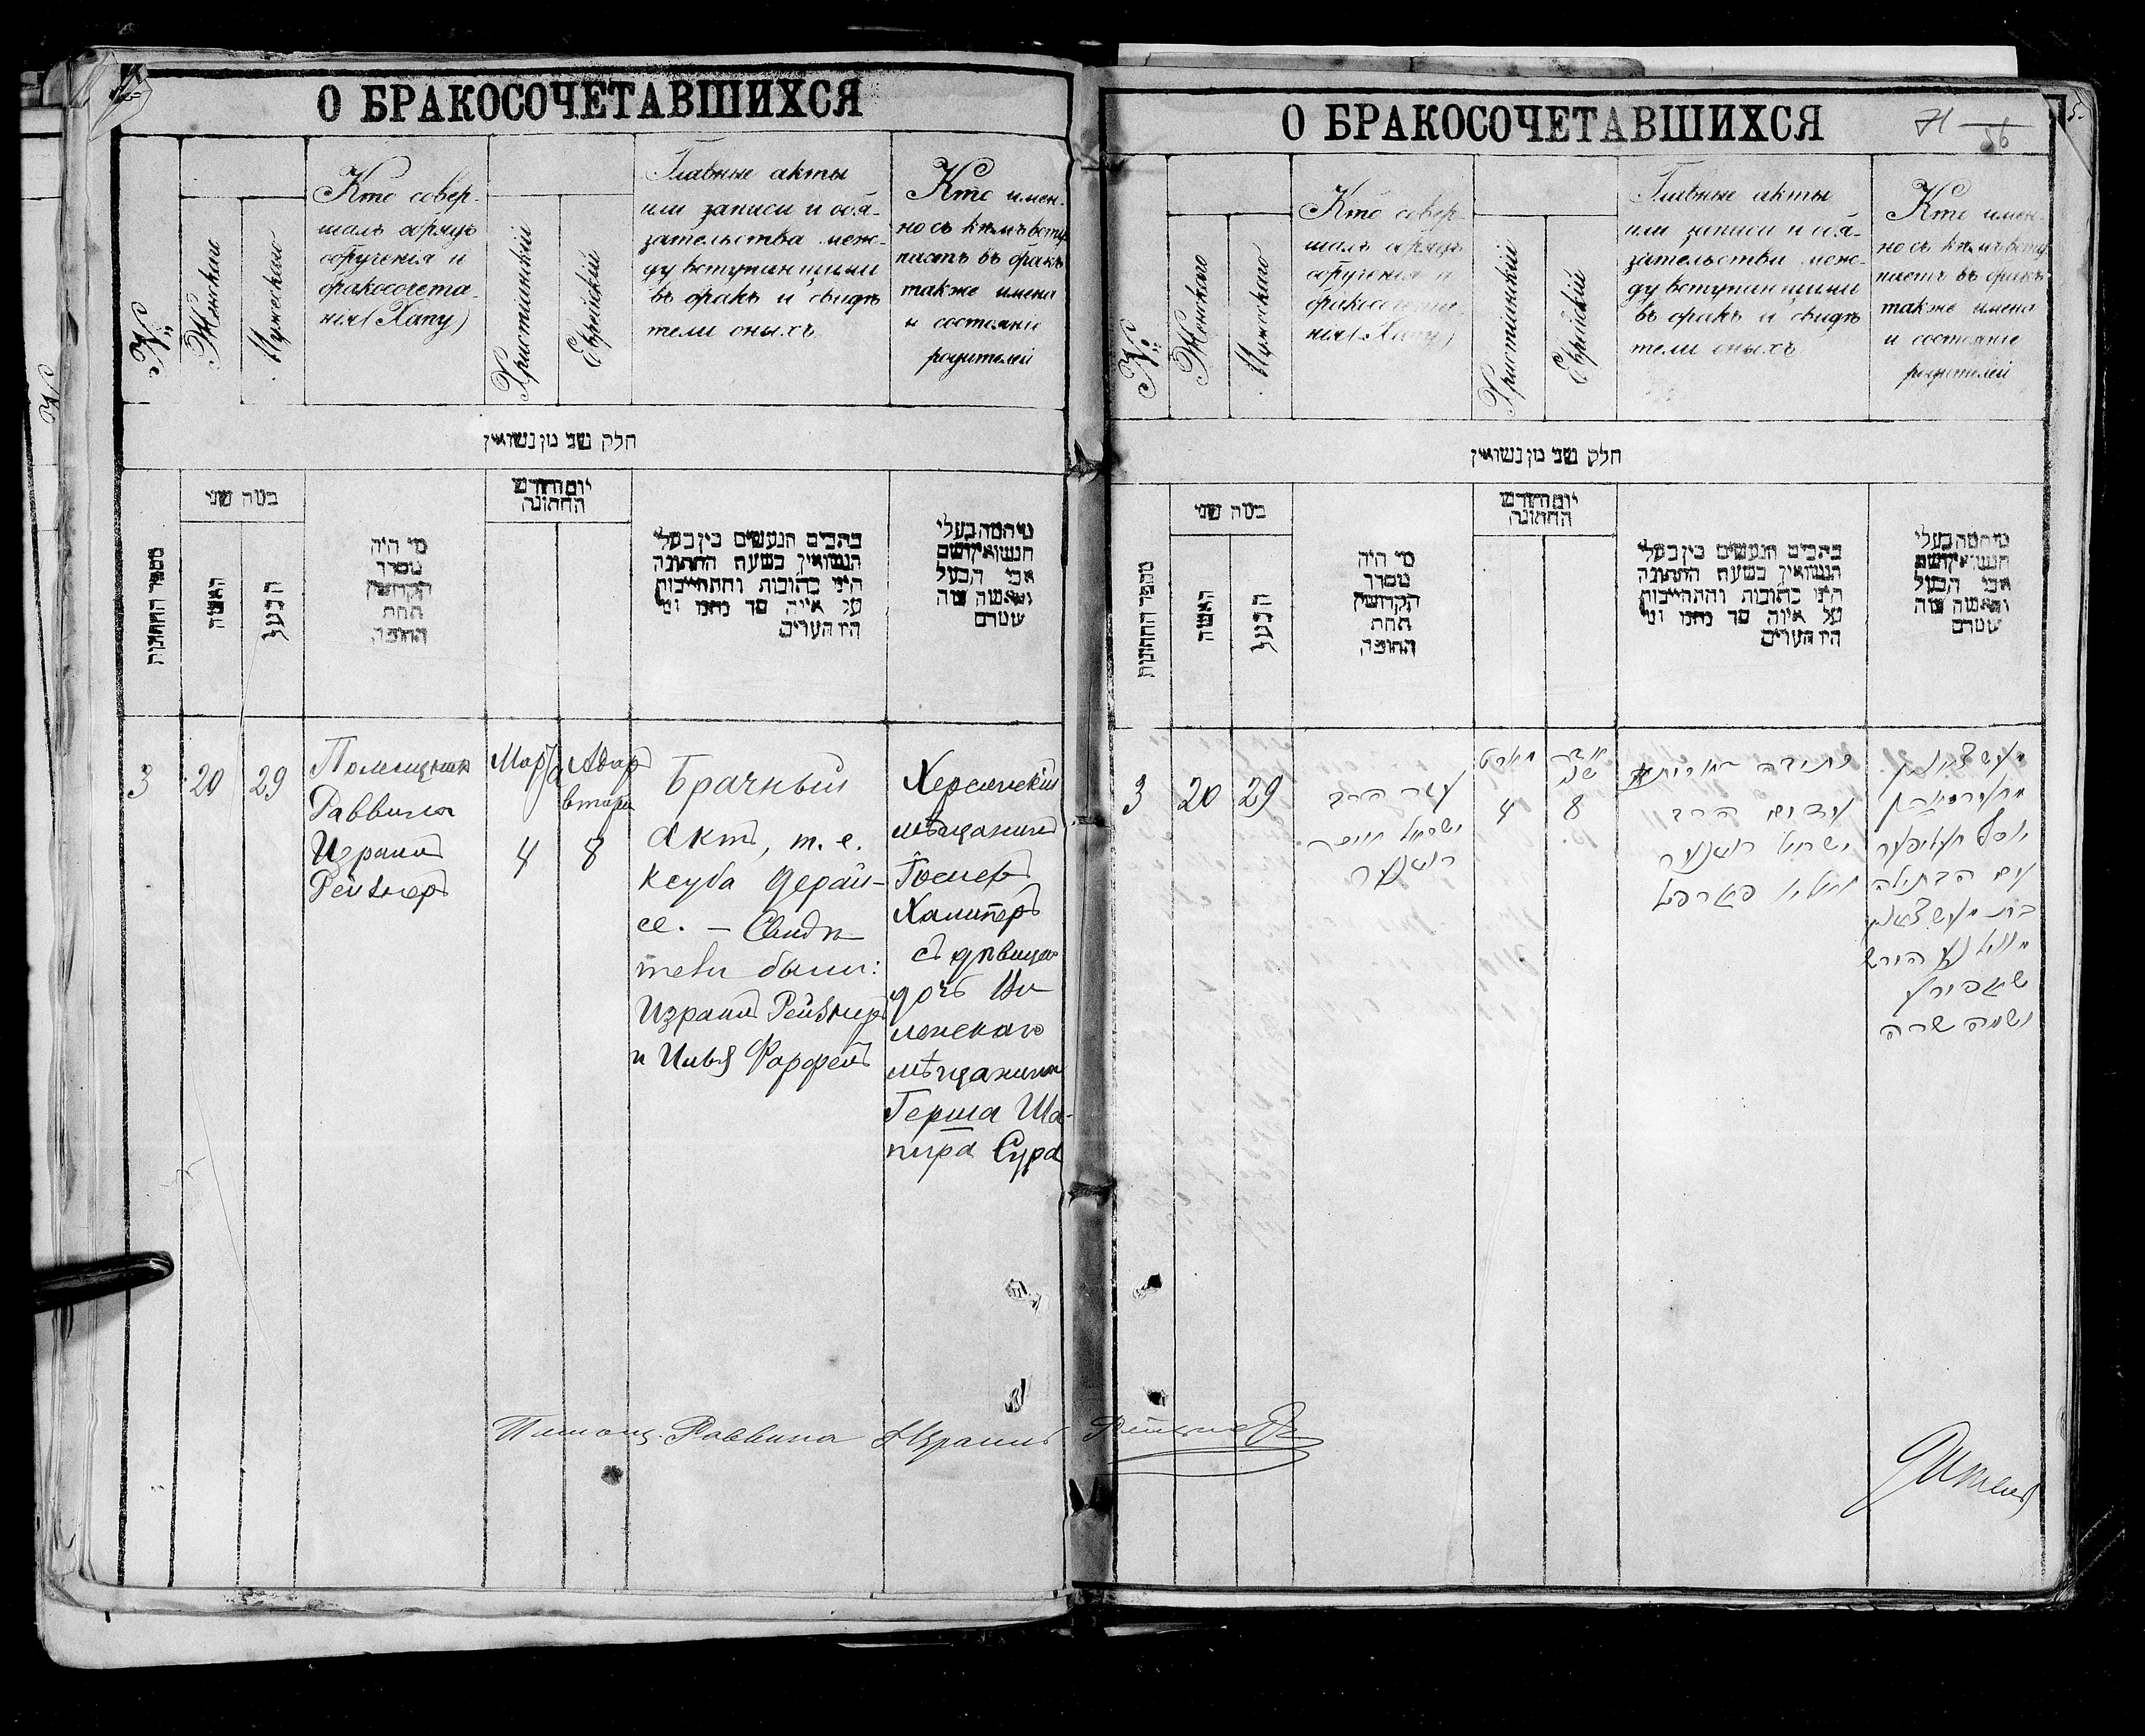 О БРАКОСОЧЕТАВШИХСЯ
№
Женскаго
Мужескаго
Кто совер-
шалъ обрядъ
обрученія и
бракосочета-
нія (Хапу)
Христіанскій
Еврейскій
Главные акты
или записи и обя-
зательства меж-
ду вступающими
въ бракъ и свидѣ
тели оныхъ
Кто имен-
но съ кѣмъ всту
паетъ въ бракъ
также имена
и состояніе
родителей
חלק שני מן נשואין
מספר החתונות
במה שני
האשה
הבעל
מי היה
מסדר
הקדושין
תחת
החופה
יום וחודש
החתונה
כתבים הנעשים בין בעלי
הנשואין בשעת החתונה
היינו כתובות והתחייבות
על איזה סך נתנו ומי
היו העדים
מי המה בעלי
הנשואין ושם
אבי הבעל
והאשה מה
שמם
3
20
29
Помощник
Раввина
Израиль
Рейзнеръ
Мартъ
4
Адар
втори
8
Брачный
актъ, т. е.
ксуба дерай-
се. – Свидѣ
тели были:
Израиль Рейзнеръ
и Илья Фарфель
Херсонскій
мѣщанинъ
Іосифъ
Халиперъ
съ дѣвицей
дочь Ви
ленскаго
мѣщанина
Герша Ша-
пира Сура
Помощ. Раввина Израиль Рейзнеръ
О БРАКОСОЧЕТАВШИХСЯ
71
56
№
Женскаго
Мужескаго
Кто совер-
шалъ обрядъ
обрученія и
бракосочета-
нія (Хапу)
Христіанскій
Еврейскій
Главные акты
или записи и обя-
зательства меж-
ду вступающими
въ бракъ и свидѣ
тели оныхъ
Кто имен-
но съ кѣмъ всту
паетъ въ бракъ
также имена
и состояніе
родителей
חלק שני מן נשואין
מספר החתונות
במה שני
האשה
הבעל
מי היה
מסדר
הקדושין
תחת
החופה
יום וחודש
החתונה
כתבים הנעשים בין בעלי
הנשואין בשעת החתונה
היינו כתובות והתחייבות
על איזה סך נתנו ומי
היו העדים
מי המה בעלי
הנשואין ושם
אבי הבעל
והאשה מה
שמם
3
20
29
הרב
ישראל
רייזנער
מארט
4
אדר
שני
8
עדים הרב
ישראל רייזנער
פארפעל
מעשצאנין
יוסף
עם הבתולה
בת מעשצאנין
ווילנע הירש
שאפירע
ושמה שרה